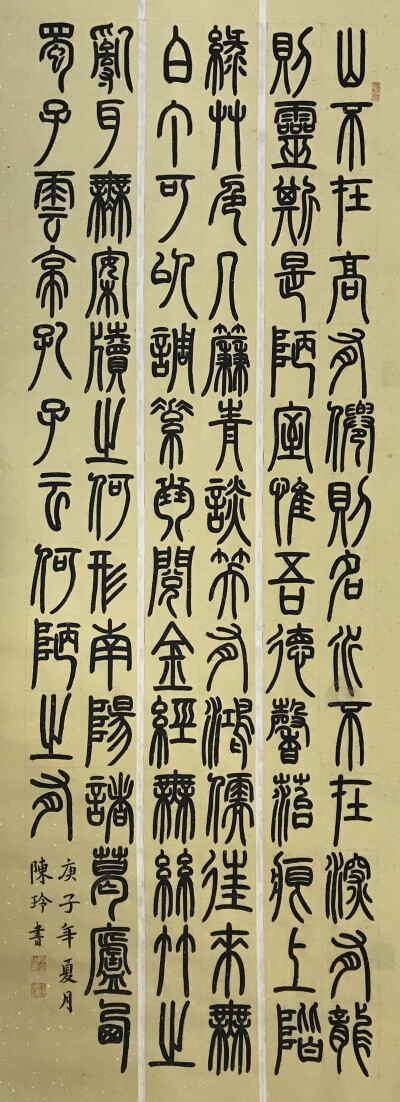 山不在高有僊則名水不在深有龍
則靈斯是陋室惟吾德馨苔痕上階
綠艸色入簾青談笑有鴻儒往來無
白丁可以調素琴閱金經無絲竹之
亂耳無案牘之何形南陽諸葛廬西
蜀子雲亭孔子云何陋之有
庚子年夏月
陳玲書